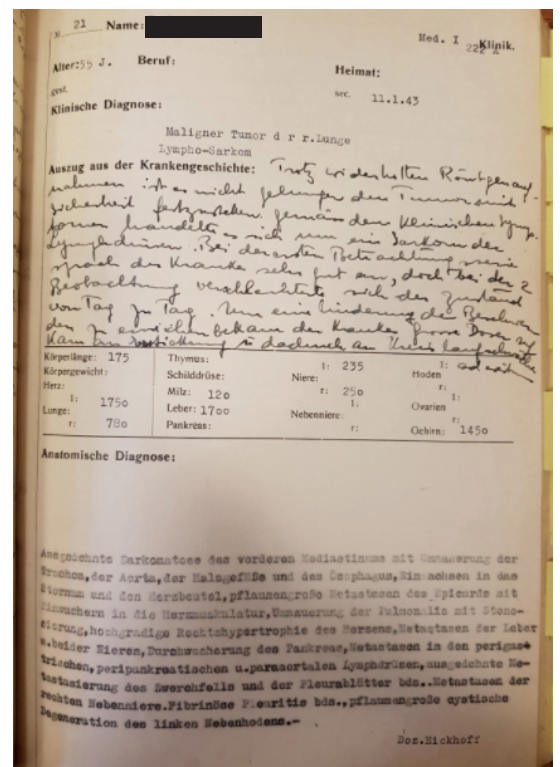 21 Name:
Med. I 222 Klinik.
Alter: 55 J. Beruf: Heimat:
gest. sec. 11.1.43
Klinische Diagnose:
Maligner Tumor d r r.Lunge
Lympho-Sarkom
Auszug aus der Krankengeschichte: Trotz wiederholten Röntgenauf-
nahmen ist es nicht gelungen den Tumor mit
Sicherheit festzustellen. Gemäss den klinischen Symp-
tomen handelte es sich um ein Sarkom der
Lymphdrüsen. Bei der ersten
sprach der Kranke sehr gut an, doch bei der 2
Beobachtung verschlechterte sich der Zustand
von Tag zu Tag. Um eine Linderung der Beschwer
den zu erreichen bekam der Kranke grosse Dosen
kam u dadurch an Kreislaufschwäche
ad exitum
Körperlänge: 175 Thymus: l: 235 l:
Körpergewicht: Schilddrüse: Niere: Hoden
Herz: Milz: 120 r: 250 r:
l: 1750 Leber: 1700 l: l:
Lunge: Nebenniere: Ovarien
r: 780 Pankreas: r: Gehirn: 1450
Anatomische Diagnose:
Ausgedehnte Sarkomatose des vorderen Mediastinums mit Ummauerung der
Trachea, der Aorta, der Halsgefäße und des Ösophagus, Einwachsen in das
Sternum und den Herzbeutel, pflaumengroße Metastasen des Epicards mit
Einwuchern in die Herzmuskulatur, Ummauerung der Pulmonalis mit Steno-
sierung, hochgradige Rechtshypertrophie des Herzens, Metastasen der Leber
u. beider Nieren, Durchwucherung des Pankreas, Metastasen in den perigas-
trischen, peripankreatischen u. paraaortalen Lymphdrüsen, ausgedehnte Me-
tastasierung des Zwerchfells und der Pleurablätter bds.. Metastasen der
rechten Nebenniere. Fibrinöse Pleuritis bds., pflaumengroße cystische
Degeneration des linken Nebenhodens.-
Doz. Eickhoff